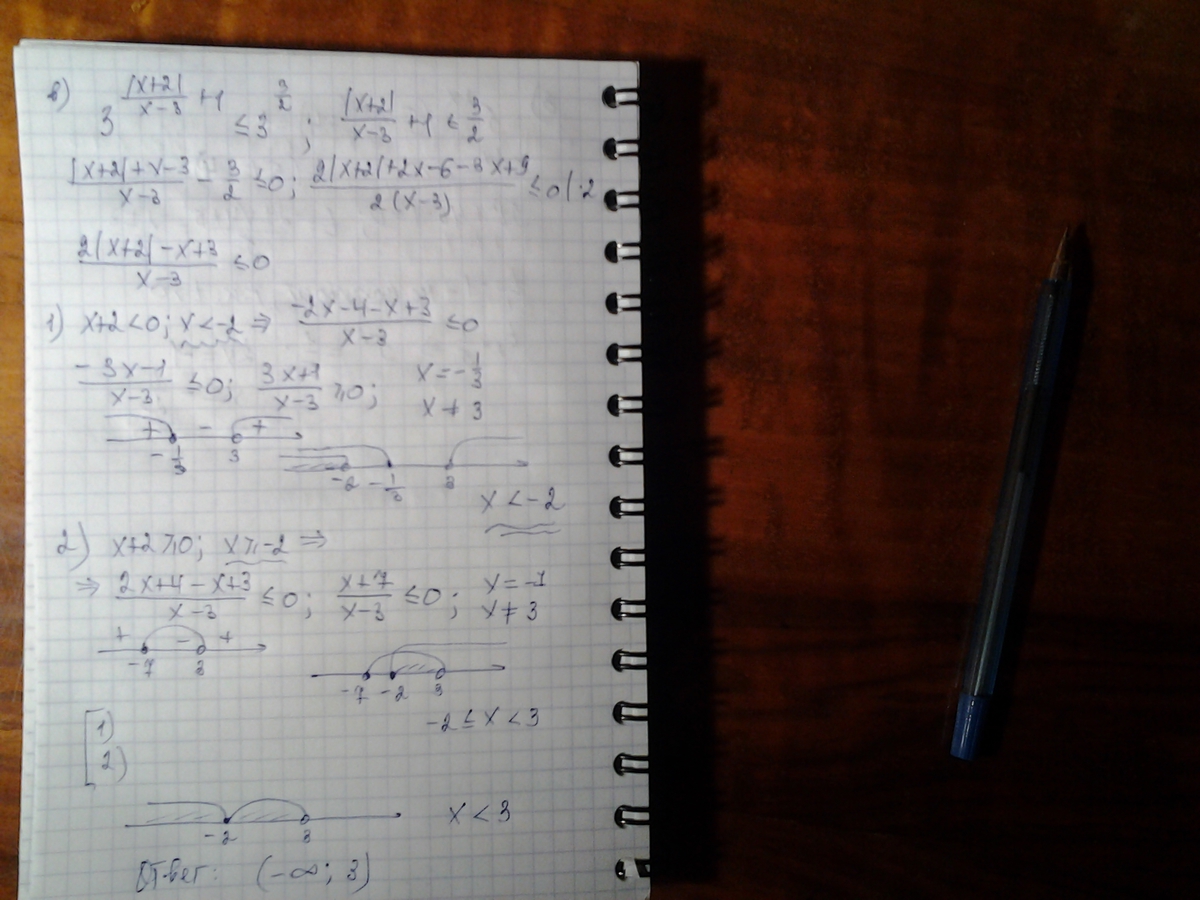 в) 3^(|x+2|/(x-3) + 1) ≤ 3^(3/2) ; |x+2|/(x-3) + 1 ≤ 3/2
(|x+2|+x-3)/(x-3) - 3/2 ≤ 0; (2|x+2|+2x-6-3x+9)/(2(x-3)) ≤ 0 |·2
(2|x+2|-x+3)/(x-3) ≤ 0
1) x+2<0; x<-2 ⇒ (-2x-4-x+3)/(x-3) ≤ 0
(-3x-1)/(x-3) ≤ 0; (3x+1)/(x-3) ≥ 0; x = -1/3
x ≠ 3
+ - +
-1/3 3
-2 -1/3 3
x < -2
2) x+2 ≥ 0; x ≥ -2 ⇒
⇒ (2x+4-x+3)/(x-3) ≤ 0; (x+7)/(x-3) ≤ 0; x = -7
x ≠ 3
+ - +
-7 3
-7 -2 3
-2 ≤ x < 3
[ 1)
2)
-2 3 x < 3
Ответ: (-∞; 3)